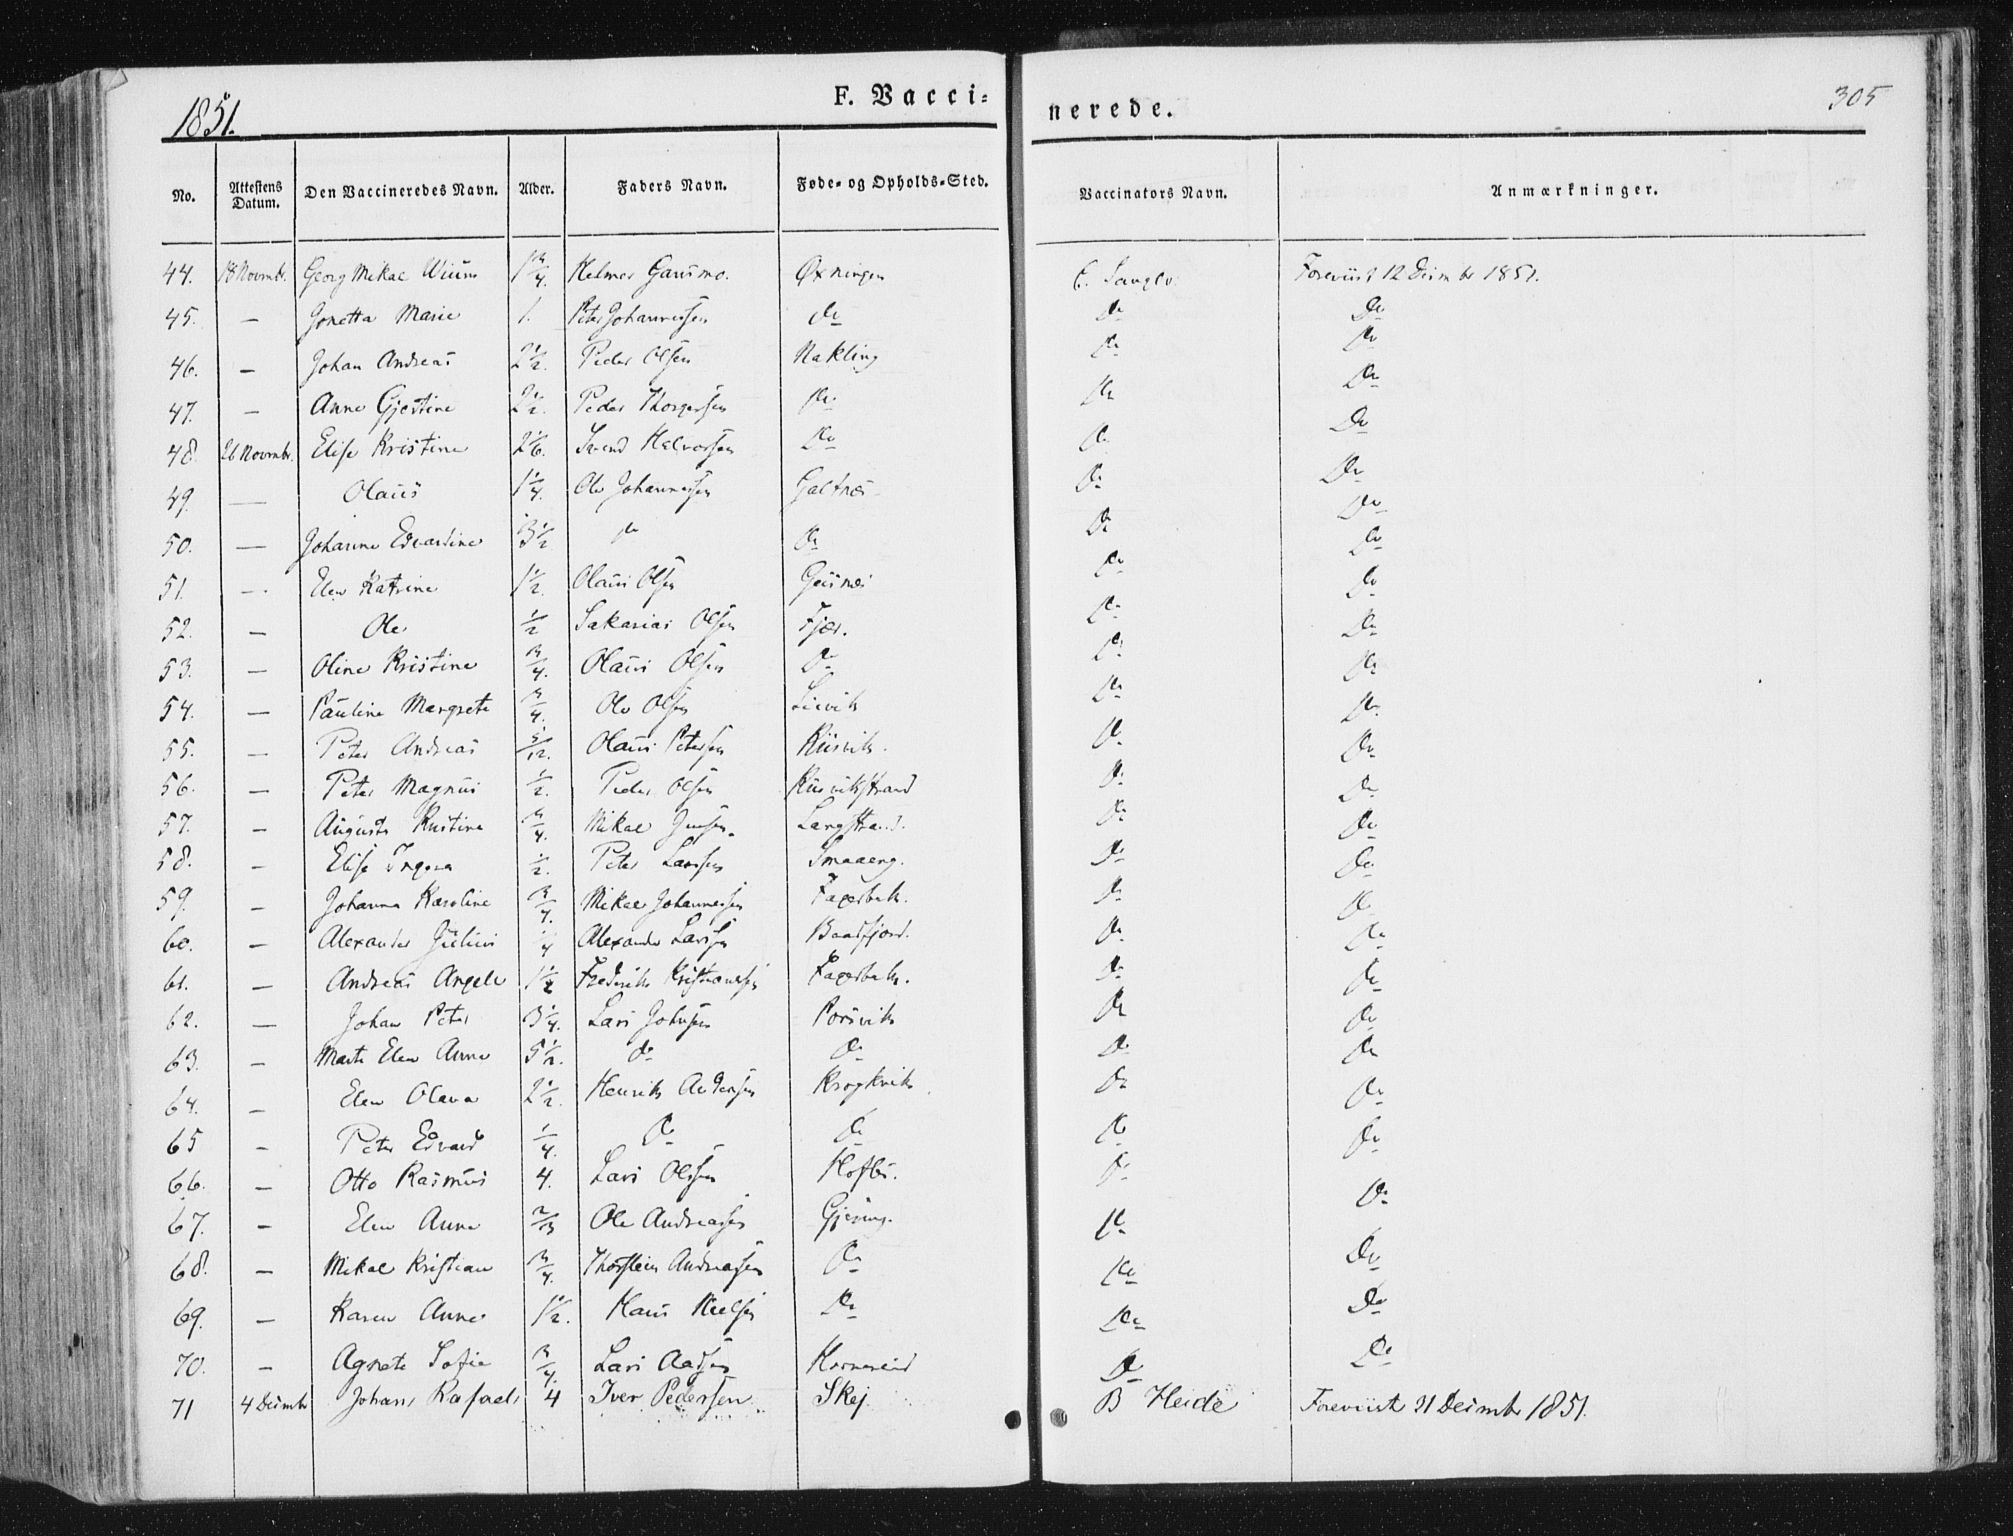 1851.
F. Vacci=
nerede.
305
No. Attestens Datum. Den Vaccineredes Navn. Alder. Faders Navn. Føde- og Opholds-Sted. Vaccinators Navn. Anmærkninger.
44. 18 Novmbr. Georg Mikal Wium 1 3/4. Helmer Gansmo. Øxningen E. Foreviist 12 Desmbr 1851.
45. — Jonetta Marie 1. Peter Johannessen do do do
46. — Johan Andreas 2 1/2. Peder Olsen Nakling do do
47. — Anne Gjertine 2 1/2. Peder Thorgersen do do do
48. 26 Novmbr. Elise Kristine 2 1/6. Svend Halvorsen do do do
49. — Olaus 1 1/4. Ole Johannessen Galtnes do do
50. — Johanne Edvardine 3 1/2 do do do do
51. — Elen Katrine 1 1/2. Olaus Olsen do do
52. — Ole 1/2 Sakarias Olsen Fjær. do do
53. — Oline Kristine 3/4. Olaus Olsen do do do
54. — Pauline Margrete 3/4. Ole Olsen do do
55. — Peter Andreas 5/12. Olaus Petersen Riisvik. do do
56. — Peter Magnus 1/2. Peder Olsen Riisvikstrand do do
57. — Augusta Kristine 3/4. Mikal Jensen. Langstrand. do do
58. — Elise Ingera 1/2. Peter Larsen Smaaeng. do do
59. — Johanna Karoline 3/4. Mikal Johannessen Fagerbak. do do
60. — Alexander Julius 1/4 Alexander Larsen Baadfjord. do do
61. — Andreas Angele 1 1/2 Frederik Kristiansen Fagerbak. do do
62. — Johan Peter 3 1/4. Lars Johnsen Porsvik do do
63. — Marte Elen Anne 5 1/2. do do do do
64. — Elen Olava 2 1/2. Henrik Andersen Krogkvik do do
65 — Peter Edvard 1/4. do do do do
66. — Otto Rasmus 4. Lars Olsen do do
67. — Elen Anne 2/3 Ole Andreassen Gjesing. do do
68. — Mikal Kristian 3/4. Thorstein Andreassen do do do
69. — Karen Anne 1 1/2. Hans Nielsen do do do
70. — Agnete Sofie 3/4. Lars Horneseid do do
71 4 Desmbr Johans Rafael 4 Iver Pedersen Skej B Heide Foreviist 31 Desmbr 1851.